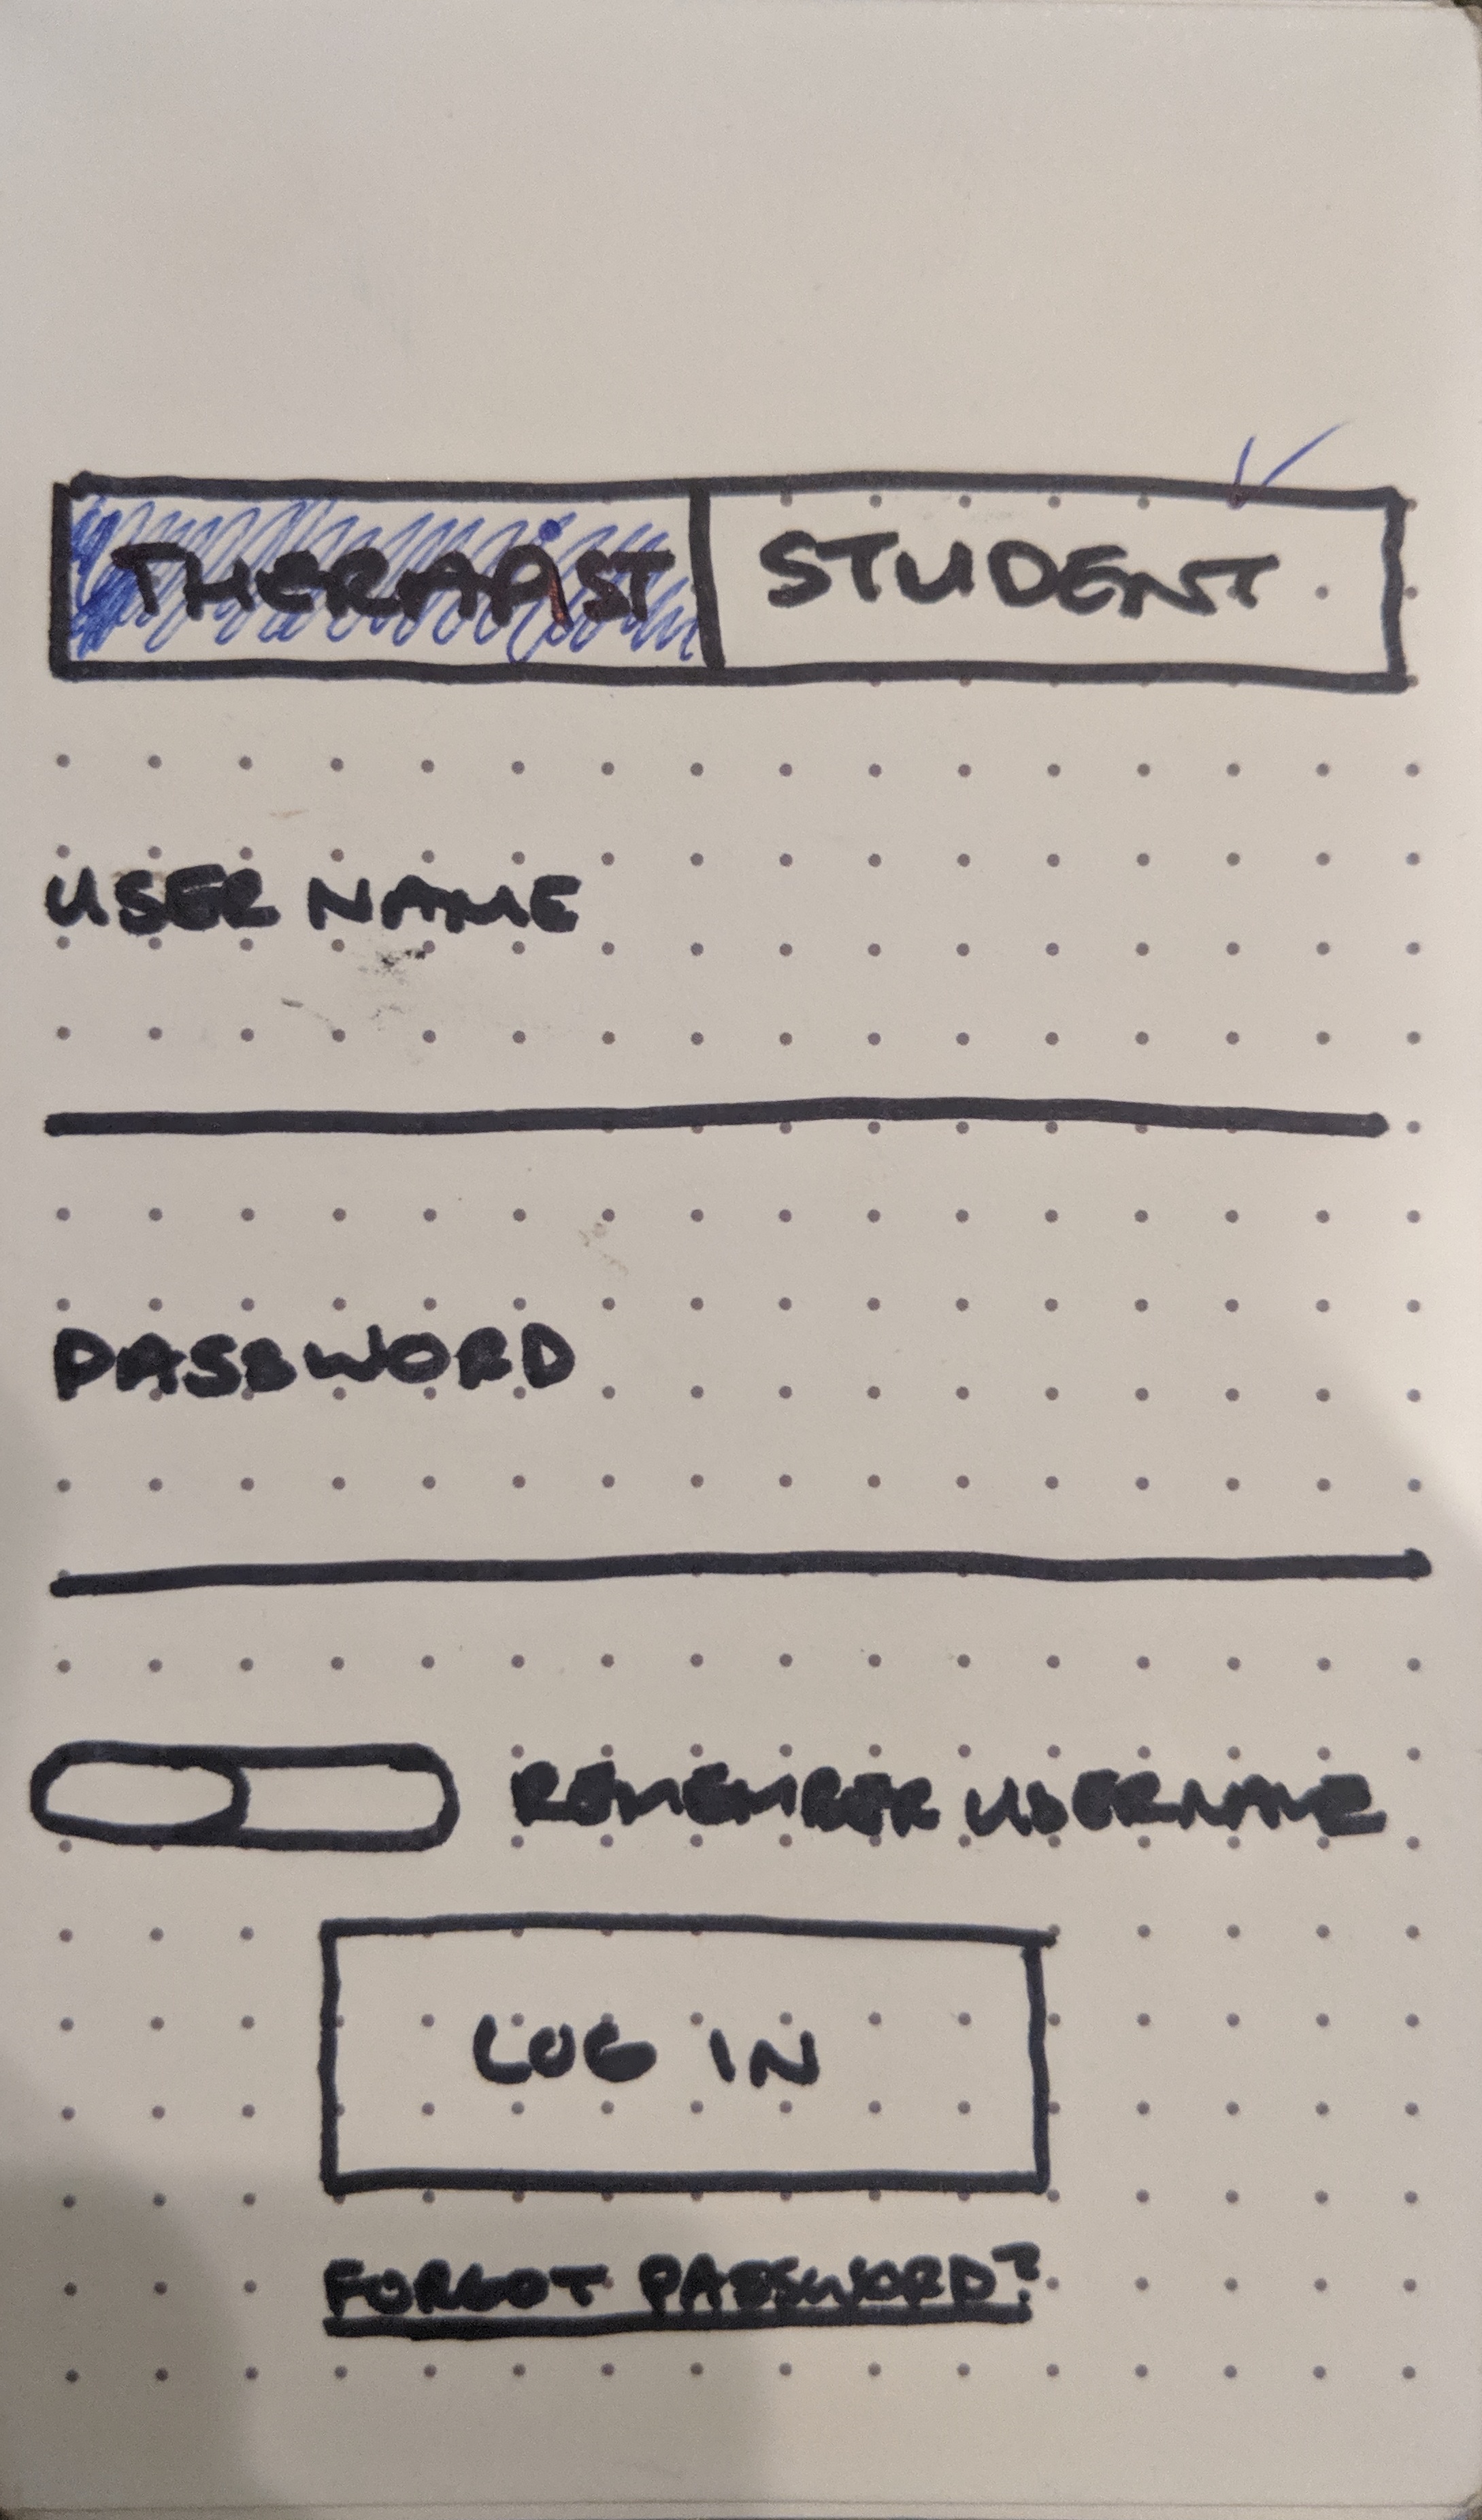 THERAPiST STUDENT
USER NAME
PASSWORD
REMEMBER USERNAME
LOG IN
FORGOT PASSWORD?